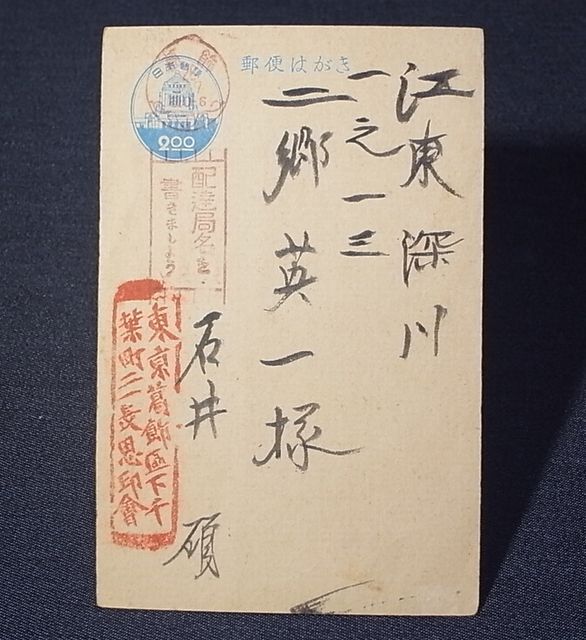 郵便はがき
日本郵便
2 00
江東 深川
一之一三
二郷 英一 様
配達局名を
書きましょう
石井 碩
東京葛飾區下千
葉町三二長思印會